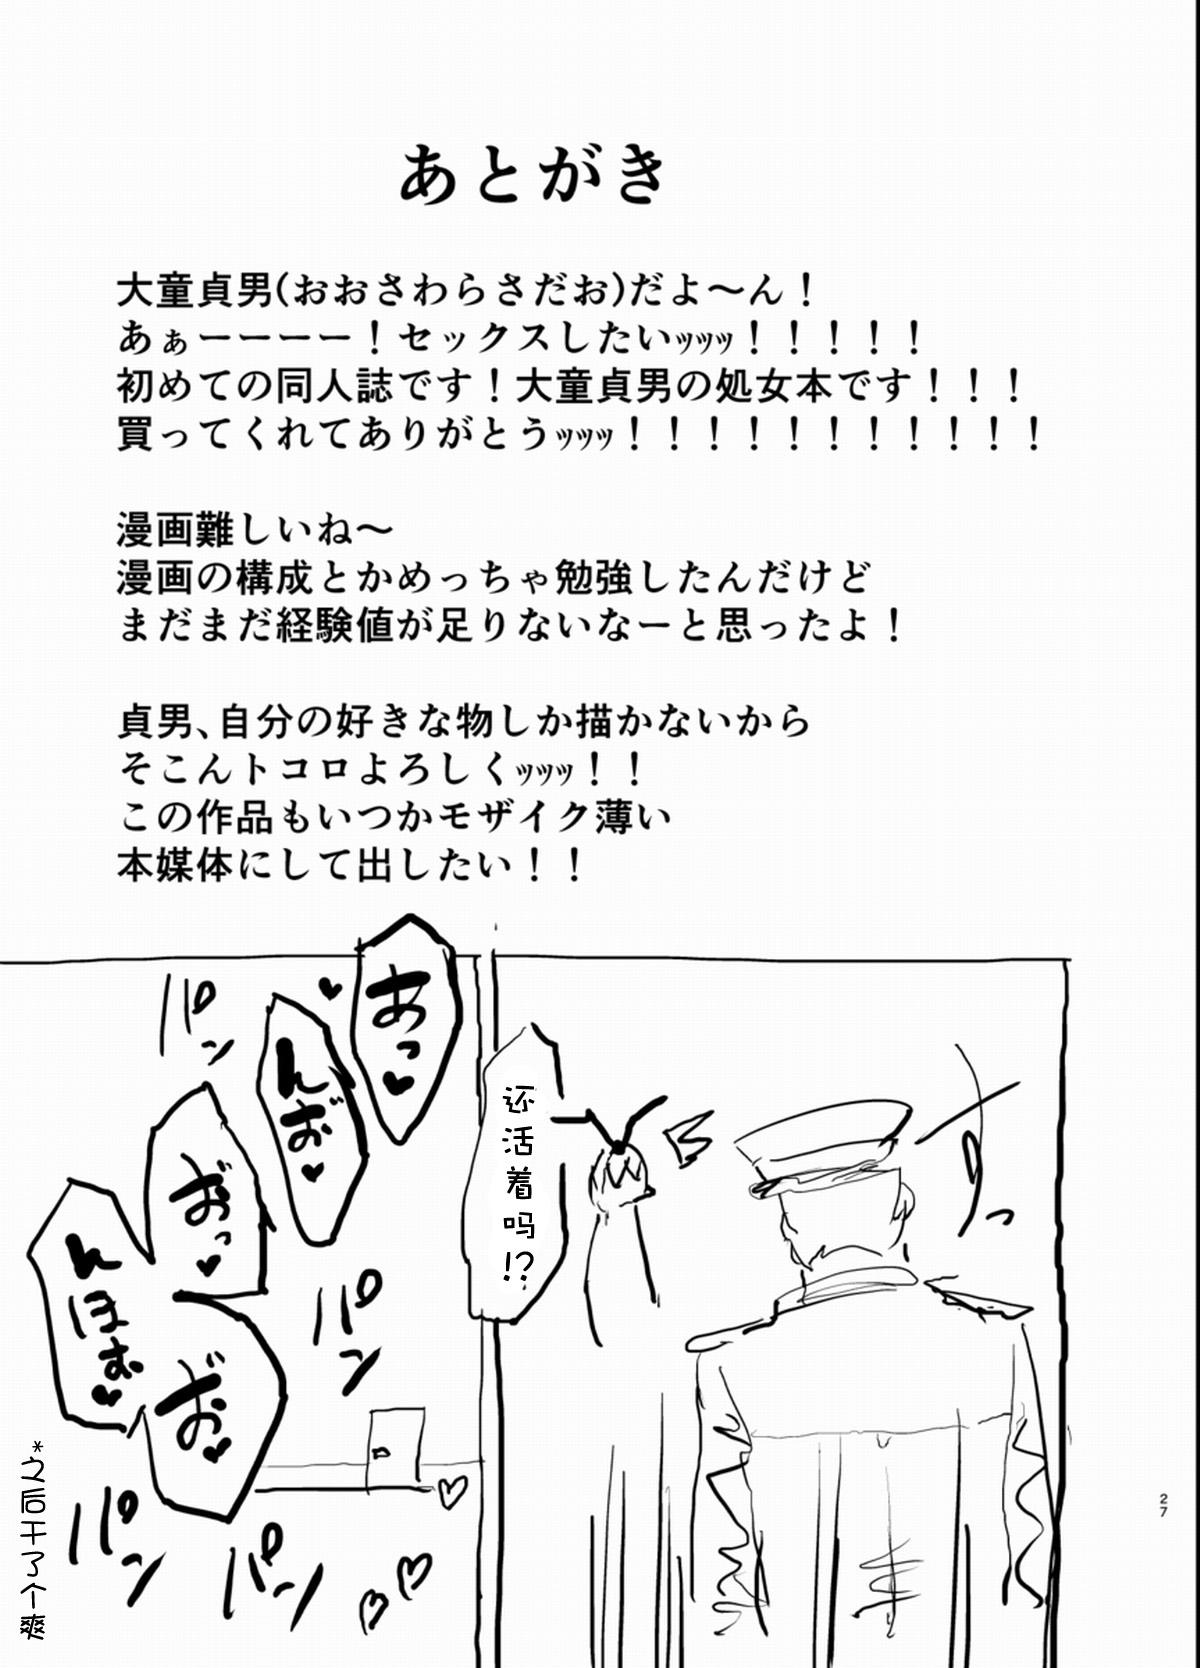 あとがき
大童貞男(おおさわらさだお)だよ～ん！
あぁーーーー！セックスしたいｯｯｯ！！！！！
初めての同人誌です！大童貞男の処女本です！！！
買ってくれてありがとうｯｯｯ！！！！！！！！！！！
漫画難しいね～
漫画の構成とかめっちゃ勉強したんだけど
まだまだ経験値が足りないなーと思ったよ！
貞男、自分の好きな物しか描かないから
そこんトコロよろしくｯｯｯ！！
この作品もいつかモザイク薄い
本媒体にして出したい！！
还活着吗!?
あっ♥
んお゛♥
お゛っ♥
んほぉ♥
お゛♥
パン
パン
パン
パン
*之后干了个爽
27